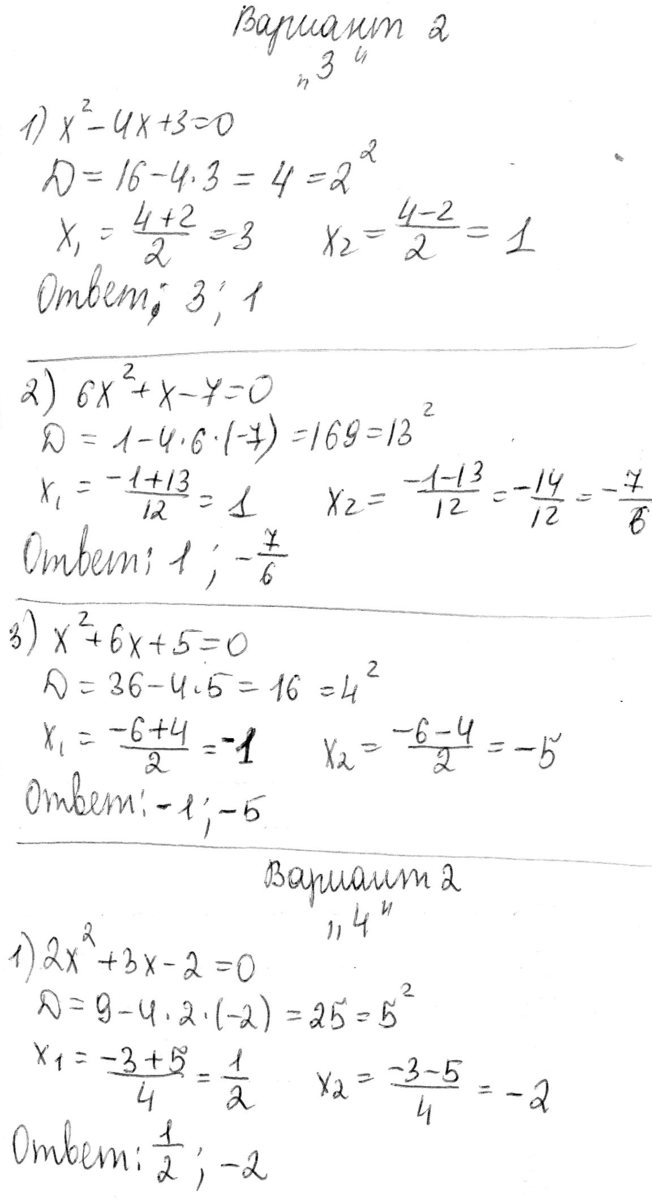 Вариант 2
„3“
1) x² - 4x + 3 = 0
D = 16 - 4·3 = 4 = 2²
x₁ = (4+2)/2 = 3 x₂ = (4-2)/2 = 1
Ответ: 3; 1
2) 6x² + x - 7 = 0
D = 1 - 4·6·(-7) = 169 = 13²
x₁ = (-1+13)/12 = 1 x₂ = (-1-13)/12 = -14/12 = -7/6
Ответ: 1; -7/6
3) x² + 6x + 5 = 0
D = 36 - 4·5 = 16 = 4²
x₁ = (-6+4)/2 = -1 x₂ = (-6-4)/2 = -5
Ответ: -1; -5
Вариант 2
„4“
1) 2x² + 3x - 2 = 0
D = 9 - 4·2·(-2) = 25 = 5²
x₁ = (-3+5)/4 = 1/2 x₂ = (-3-5)/4 = -2
Ответ: 1/2; -2